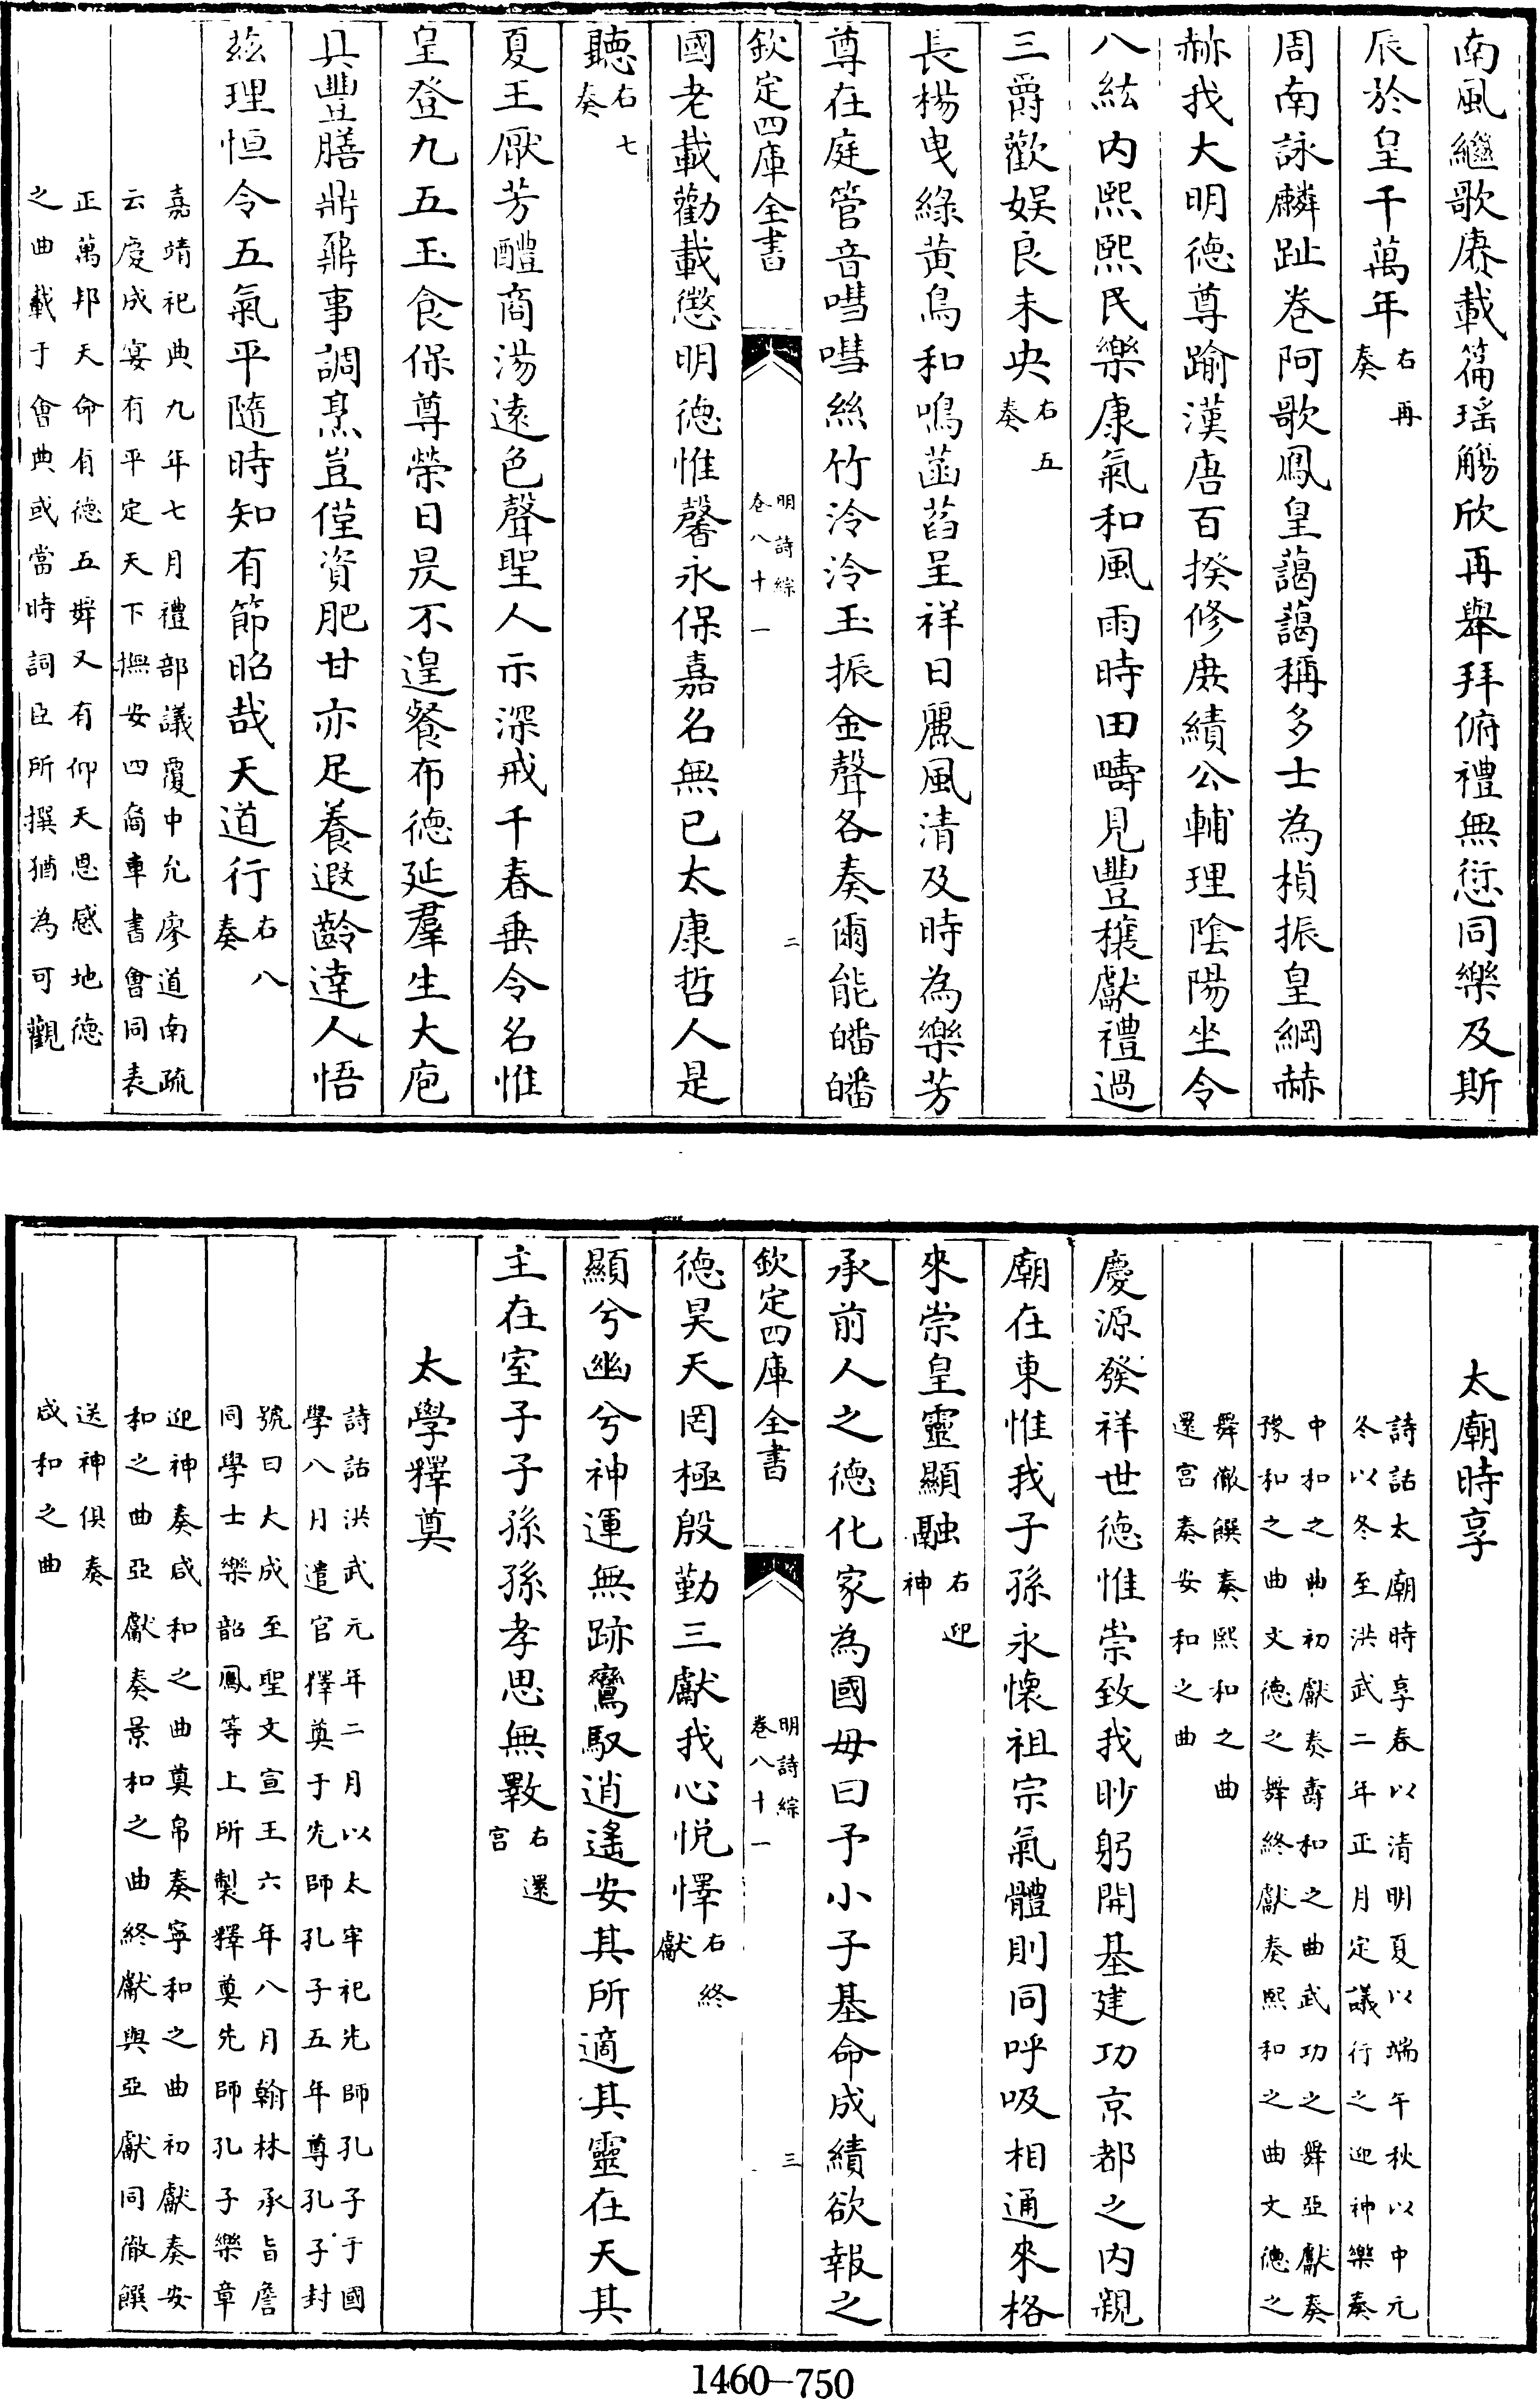 南風繼歌賡載篇瑤觴欣再舉拜俯禮無愆同樂及斯
辰於皇千萬年右再奏
周南詠麟趾卷阿歌鳳皇藹藹稱多士為楨振皇綱赫
赫我大明德尊踰漢唐百揆修庶績公輔理陰陽坐令
八紘内熙熙民樂康氣和風雨時田疇見豐穰獻禮過
三爵歡娱良未央右五奏
長楊曳綠黄鳥和鳴菡萏呈祥日麗風清及時為樂芳
尊在庭管音嘒嘒絲竹泠泠玉振金聲各奏爾能皤皤
欽定四庫全書 明詩綜 卷八十一 二
國老載勸載懲明德惟馨永保嘉名無已太康哲人是
聽右七奏
夏王厭芳醴商湯遠色聲聖人示深戒千春垂令名惟
皇登九五玉食保尊榮日昃不遑餐布德延羣生大庖
具豐膳鼎鼐事調烹豈僅資肥甘亦足養遐齡達人悟
兹理恒令五氣平隨時知有節昭哉天道行右八奏
嘉靖祀典九年七月禮部議覆中允廖道南疏
云慶成宴有平定天下撫安四裔車書會同表
正萬邦天命有德五舞又有仰天恩感地德
之曲載于會典或當時詞臣所撰猶為可觀
太廟時享
詩話太廟時享春以清明夏以端午秋以中元
冬以冬至洪武二年正月定議行之迎神樂奏
中和之曲初獻奏壽和之曲武功之舞亞獻奏
豫和之曲文德之舞終獻奏熙和之曲文德之
舞徹饌奏熙和之曲
還宫奏安和之曲
慶源發祥世德惟崇致我眇躬開基建功京都之内親
廟在東惟我子孫永懷祖宗氣體則同呼吸相通來格
來崇皇靈顯融右迎神
承前人之德化家為國毋曰予小子基命成績欲報之
欽定四庫全書 明詩綜 卷八十一 三
德昊天罔極殷勤三獻我心悦懌右終獻
顯兮幽兮神運無跡鸞馭逍遙安其所適其靈在天其
主在室子子孫孫孝思無斁右還宫
太學釋奠
詩話洪武元年二月以太牢祀先師孔子于國
學八月遣官釋奠于先師孔子五年尊孔子封
號曰大成至聖文宣王六年八月翰林承旨詹
同學士樂韶鳳等上所製釋奠先師孔子樂章
迎神奏咸和之曲奠帛奏寧和之曲初獻奏安
和之曲亞獻奏景和之曲終獻與亞獻同徹饌
送神俱奏
咸和之曲
1460—750